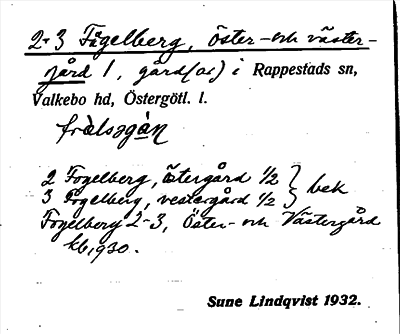 2-3 Fågelberg, Öster- och väster-
gård 1, gård(ar) i Rappestads sn,
Valkebo hd, Östergötl. l.
frälsagån
2 Fogelberg, östergård 1/2 } bek
3 Fogelberg, vestergård 1/2
Fogelberg 2-3, Öster- och Västergård
kb, 930.
Sune Lindqvist 1932.